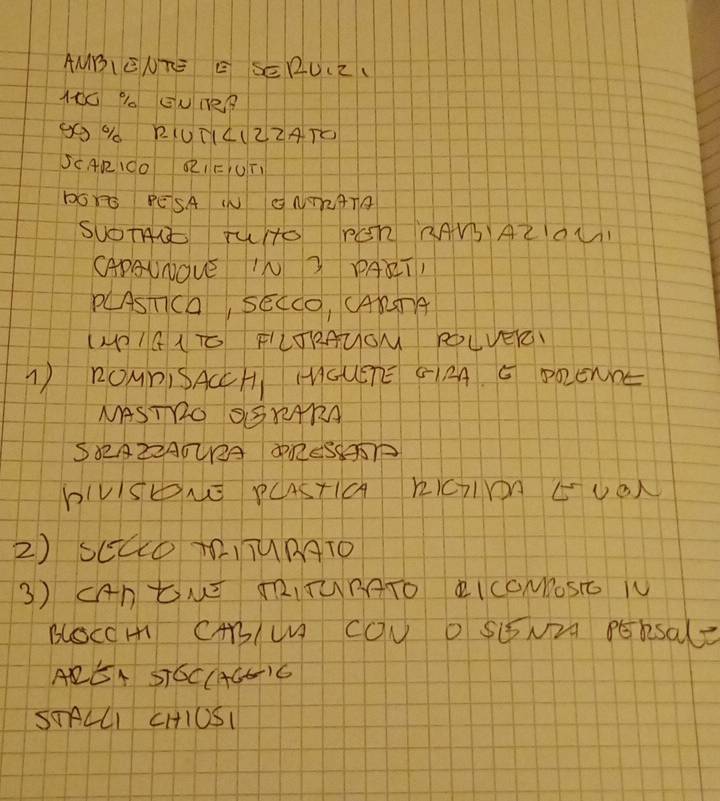 AMBIENTE E SERVIZI
100 % ENTRA
99 % RIUTILIZZATO
SCARICO RIFIUTI
DOPO PESA IN ENTRATA
SVOTANO TUTTO PER RADIAZIONI
CAPANNONE IN 3 PARTI
PLASTICA, SECCO, CARTA
IMPIANTO FILTRAZION POLVERI
1) ROMPISACCHI, MAGNETE GIRA E PRENDE
NASTRO SEPARA
SPAZZATURA PRESSATA
DIVISIONE PLASTICA RIGIDA E NON
2) SECCO TRITURATO
3) CARTONE TRITURATO RICOMPOSTO IN
BLOCCHI CABINA CON O SENZA PERSONALE
AREA STOCCAGGIO
STALLI CHIUSI